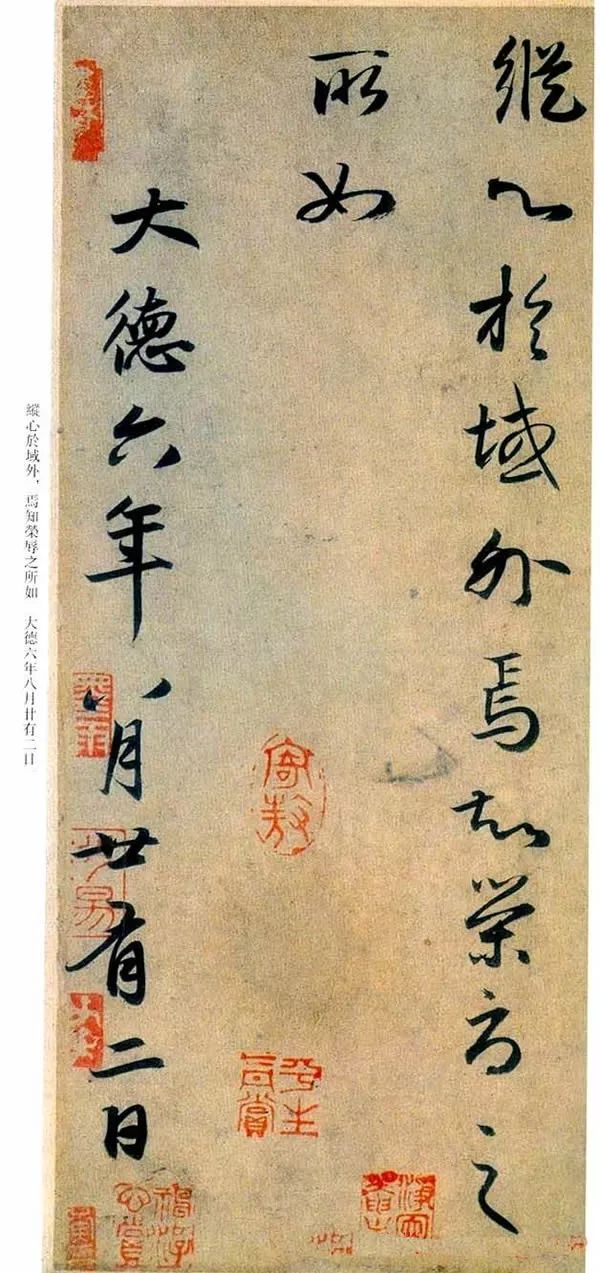 縱心於域外焉知榮辱之
所如
大德六年八月廿有二日
縱心於域外，焉知榮辱之所如　大德六年八月廿有二日